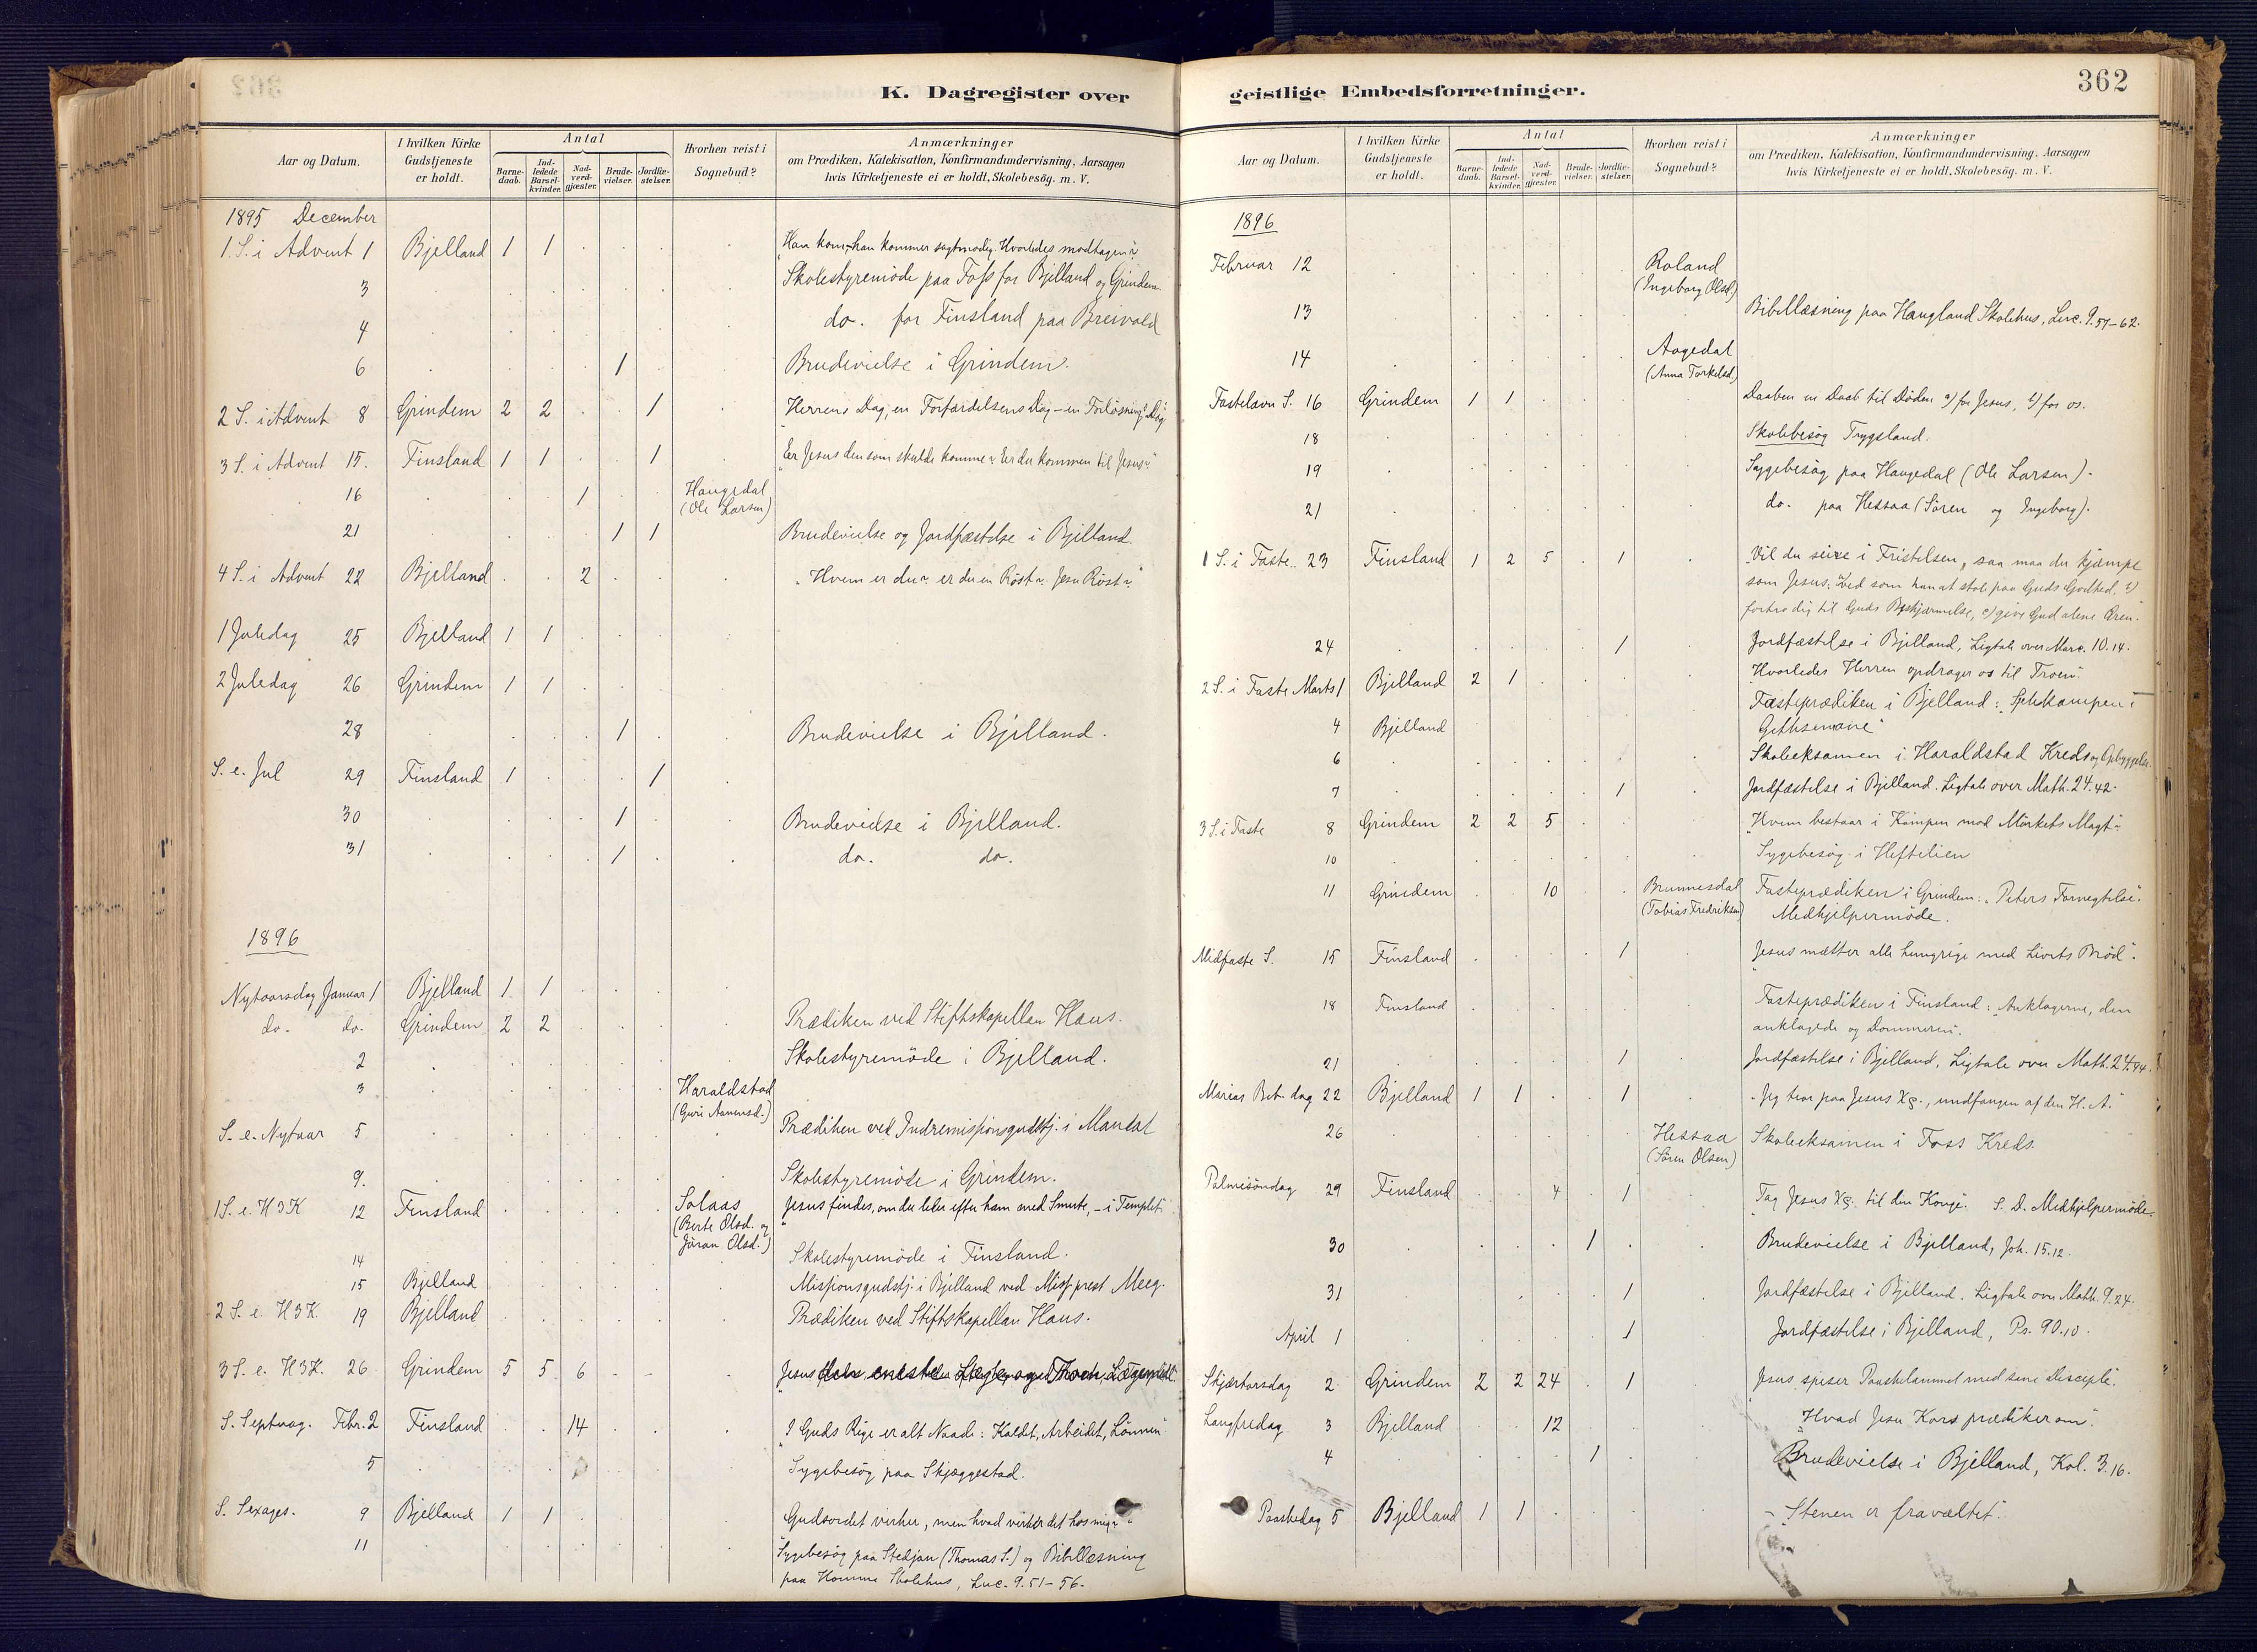 K. Dagregister over
Aar og Datum.
I hvilken Kirke Gudstjeneste er holdt.
Antal
Barnedaab.
Indledede Barselkvinder.
Nadverdgjæster.
Brudevielser.
Jordfæstelser.
Hvorhen reist i Sognebud?
Anmærkninger
om Prædiken, Katekisation, Konfirmandundervisning, Aarsagen
hvis Kirketjeneste ei er holdt, Skolebesøg. m. V.
1895 December
1 S. i Advent 1 Bjelland 1 1 "Han kom, han kommer sagtmodig. Hvorledes modtagen?"
3 Skolestyremöde paa Foss for Bjelland og Grindem.
4 do. for Finsland paa Breivold
6 1 Brudevielse i Grindem.
2 S. i Advent 8 Grindem 2 2 1 "Herrens Dag, en Forfærdelsens Dag – en Forløsningens Dag"
3 S. i Advent 15. Finsland 1 1 1 "Er Jesus den som skulde komme? Er du kommen til Jesus?"
16 1 Haugedal
(Ole Larsen)
21 1 1 Brudevielse og Jordfæstelse i Bjelland.
4 S. i Advent 22 Bjelland 2 "Hvem er du? er du en Røst? Jesu Røst?"
1 Juledag 25 Bjelland 1 1
2 Juledag 26 Grindem 1 1
28 1 Brudevielse i Bjelland.
S. e. Jul 29 Finsland 1 1
30 1 Brudevielse i Bjelland.
31 1 do. do.
1896
Nytaarsdag Januar 1 Bjelland 1 1
do. do. Grindem 2 2 Prædiken ved Stiftskapellan Hans.
2 Skolestyremöde i Bjelland.
3 Haraldstad
(Guri Aanensd.)
S. e. Nytaar 5 Prædiken ved Indremissionsgudstj. i Mandal
9. Skolestyremöde i Grindem.
1 S. e. H3K 12 Finsland Solaas "Jesus findes, om du leder efter ham med Smerte, – i Templet"
(Berte Olsd. og
Jöran Olsd.)
14 Skolestyremöde i Finsland.
15 Bjelland Missionsgudstj. i Bjelland ved Miss. prest Meeg.
2 S. e. H3K. 19 Bjelland Prædiken ved Stiftskapellan Hans.
3 S. e. H3K. 26 Grindem 5 5 6 "Jesus den eneste Læge og Troen Lægemidlet"
S. Septuag. Febr. 2 Finsland 14 "I Guds Rige er alt Naade: Kaldet, Arbeidet, Lønnen"
5 Sygebesög paa Skjæggestad.
S. Sexages. 9 Bjelland 1 1 Gudsordet virker, men hvad virker det hos mig?"
11 Sygebesög paa Stedjan (Thomas S.) og Bibellæsning
paa Homme Skolehus, Luc. 9.51–56.
geistlige Embedsforretninger.
362
Aar og Datum.
I hvilken Kirke Gudstjeneste er holdt.
Antal
Barnedaab.
Indledede Barselkvinder.
Nadverdgjæster.
Brudevielser.
Jordfæstelser.
Hvorhen reist i Sognebud?
Anmærkninger
om Prædiken, Katekisation, Konfirmandundervisning, Aarsagen
hvis Kirketjeneste ei er holdt, Skolebesøg. m. V.
1896
Februar 12 Roland
(Ingeborg Olsd.)
13 Bibellæsning paa Haugland Skolehus, Luc. 9.57–62.
14 Aagedal
(Anna Torkelsd.)
Fastelavn S. 16 Grindem 1 1 Daaben en Daab til Døden a) for Jesus, b) for os.
18 Skolebesög Trygsland.
19 Sygebesög paa Haugedal (Ole Larsen).
21 do. paa Hessaa (Sören og Ingeborg).
1 S. i Faste. 23 Finsland 1 2 5 1 "Vil du seire i Fristelsen, saa maa du kjæmpe
som Jesus: a) ved som han at stole paa Guds Godhed, b)
fortro dig til Guds Beskjærmelse, c) give Gud alene Æren."
24 1 Jordfæstelse i Bjelland, Ligtale over Marc. 10.14.
2 S. i Faste Marts 1 Bjelland 2 1 "Hvorledes Herren opdrager os til Troen".
4 Bjelland Fasteprædiken i Bjelland: "Sjelekampen i
Gethsemane"
6 Skoleeksamen i Haraldstad Kreds og Opbyggelse.
7 1 Jordfæstelse i Bjelland. Ligtale over Math. 24.42.
3 S. i Faste 8 Grindem 2 2 5 "Hvem bestaar i Kampen mod Mörkets Magt?"
10 Sygebesög i Heftelien
11 Grindem 10 Brunnesdal Fasteprædiken i Grindem: "Peters Fornegtelse".
(Tobias Fredriksen) Medhjelpermöde.
Midfaste S. 15 Finsland 1 "Jesus mætter alle hungrige med Livets Bröd".
18 Finsland Fasteprædiken i Finsland: "Anklagerne, den
anklagede og Dommeren".
21 1 Jordfæstelse i Bjelland, Ligtale over Math. 24.44.
Marias Beb. dag 22 Bjelland 1 1 1 "Jeg tror paa Jesus Xs., undfangen af den H. A."
26 Hessaa Skoleeksamen i Foss Kreds.
(Sören Olsen)
Palmesöndag 29 Finsland 4 1 "Tag Jesus Xs. til din Konge". S. D. Medhjelpermöde.
30 1 Brudevielse i Bjelland, Joh. 15.12.
31 1 Jordfæstelse i Bjelland. Ligtale over Math. 9.24.
April 1 1 Jordfæstelse i Bjelland, Ps. 90.10.
Skjærtorsdag 2 Grindem 2 2 24 1 Jesus spiser Paaskelammet med sine Disciple".
Langfredag 3 Bjelland 12 "Hvad Jesu Kors prædiker om".
4 1 Brudevielse i Bjelland, Kol. 3.16.
Paaskedag 5 Bjelland 1 1 "Stenen er fravæltet".